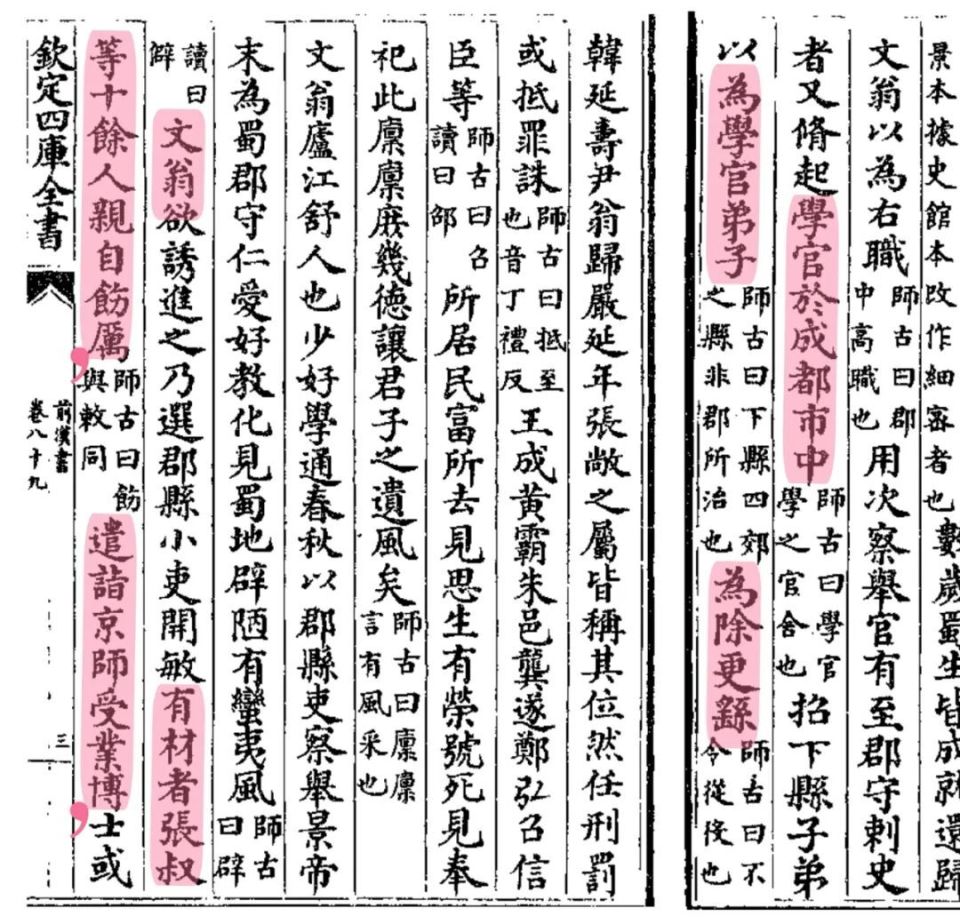 景本據史館本改作細密者也數歲蜀生皆成就還歸
文翁以為右職師古曰郡中高職也用次察舉官有至郡守刺史
者又脩起學官於成都市中師古曰學官學之官舍也招下縣子弟
以為學官弟子師古曰下縣四郊之縣非郡所治也為除更繇師古曰不令從役也
韓延壽尹翁歸嚴延年張敞之屬皆稱其位然任刑罰
或抵罪誅師古曰抵至也音丁禮反王成黃霸朱邑龔遂鄭弘召信
臣等師古曰召讀曰邵所居民富所去見思生有榮號死見奉
祀此廩廩庶幾德讓君子之遺風矣師古曰廩廩言有風采也
文翁廬江舒人也少好學通春秋以郡縣吏察舉景帝
末為蜀郡守仁愛好教化見蜀地辟陋有蠻夷風師古曰辟
讀曰僻文翁欲誘進之乃選郡縣小吏開敏有材者張叔
等十餘人親自飭厲師古曰飭與敕同遣詣京師受業博士或
欽定四庫全書
前漢書
卷八十九
三